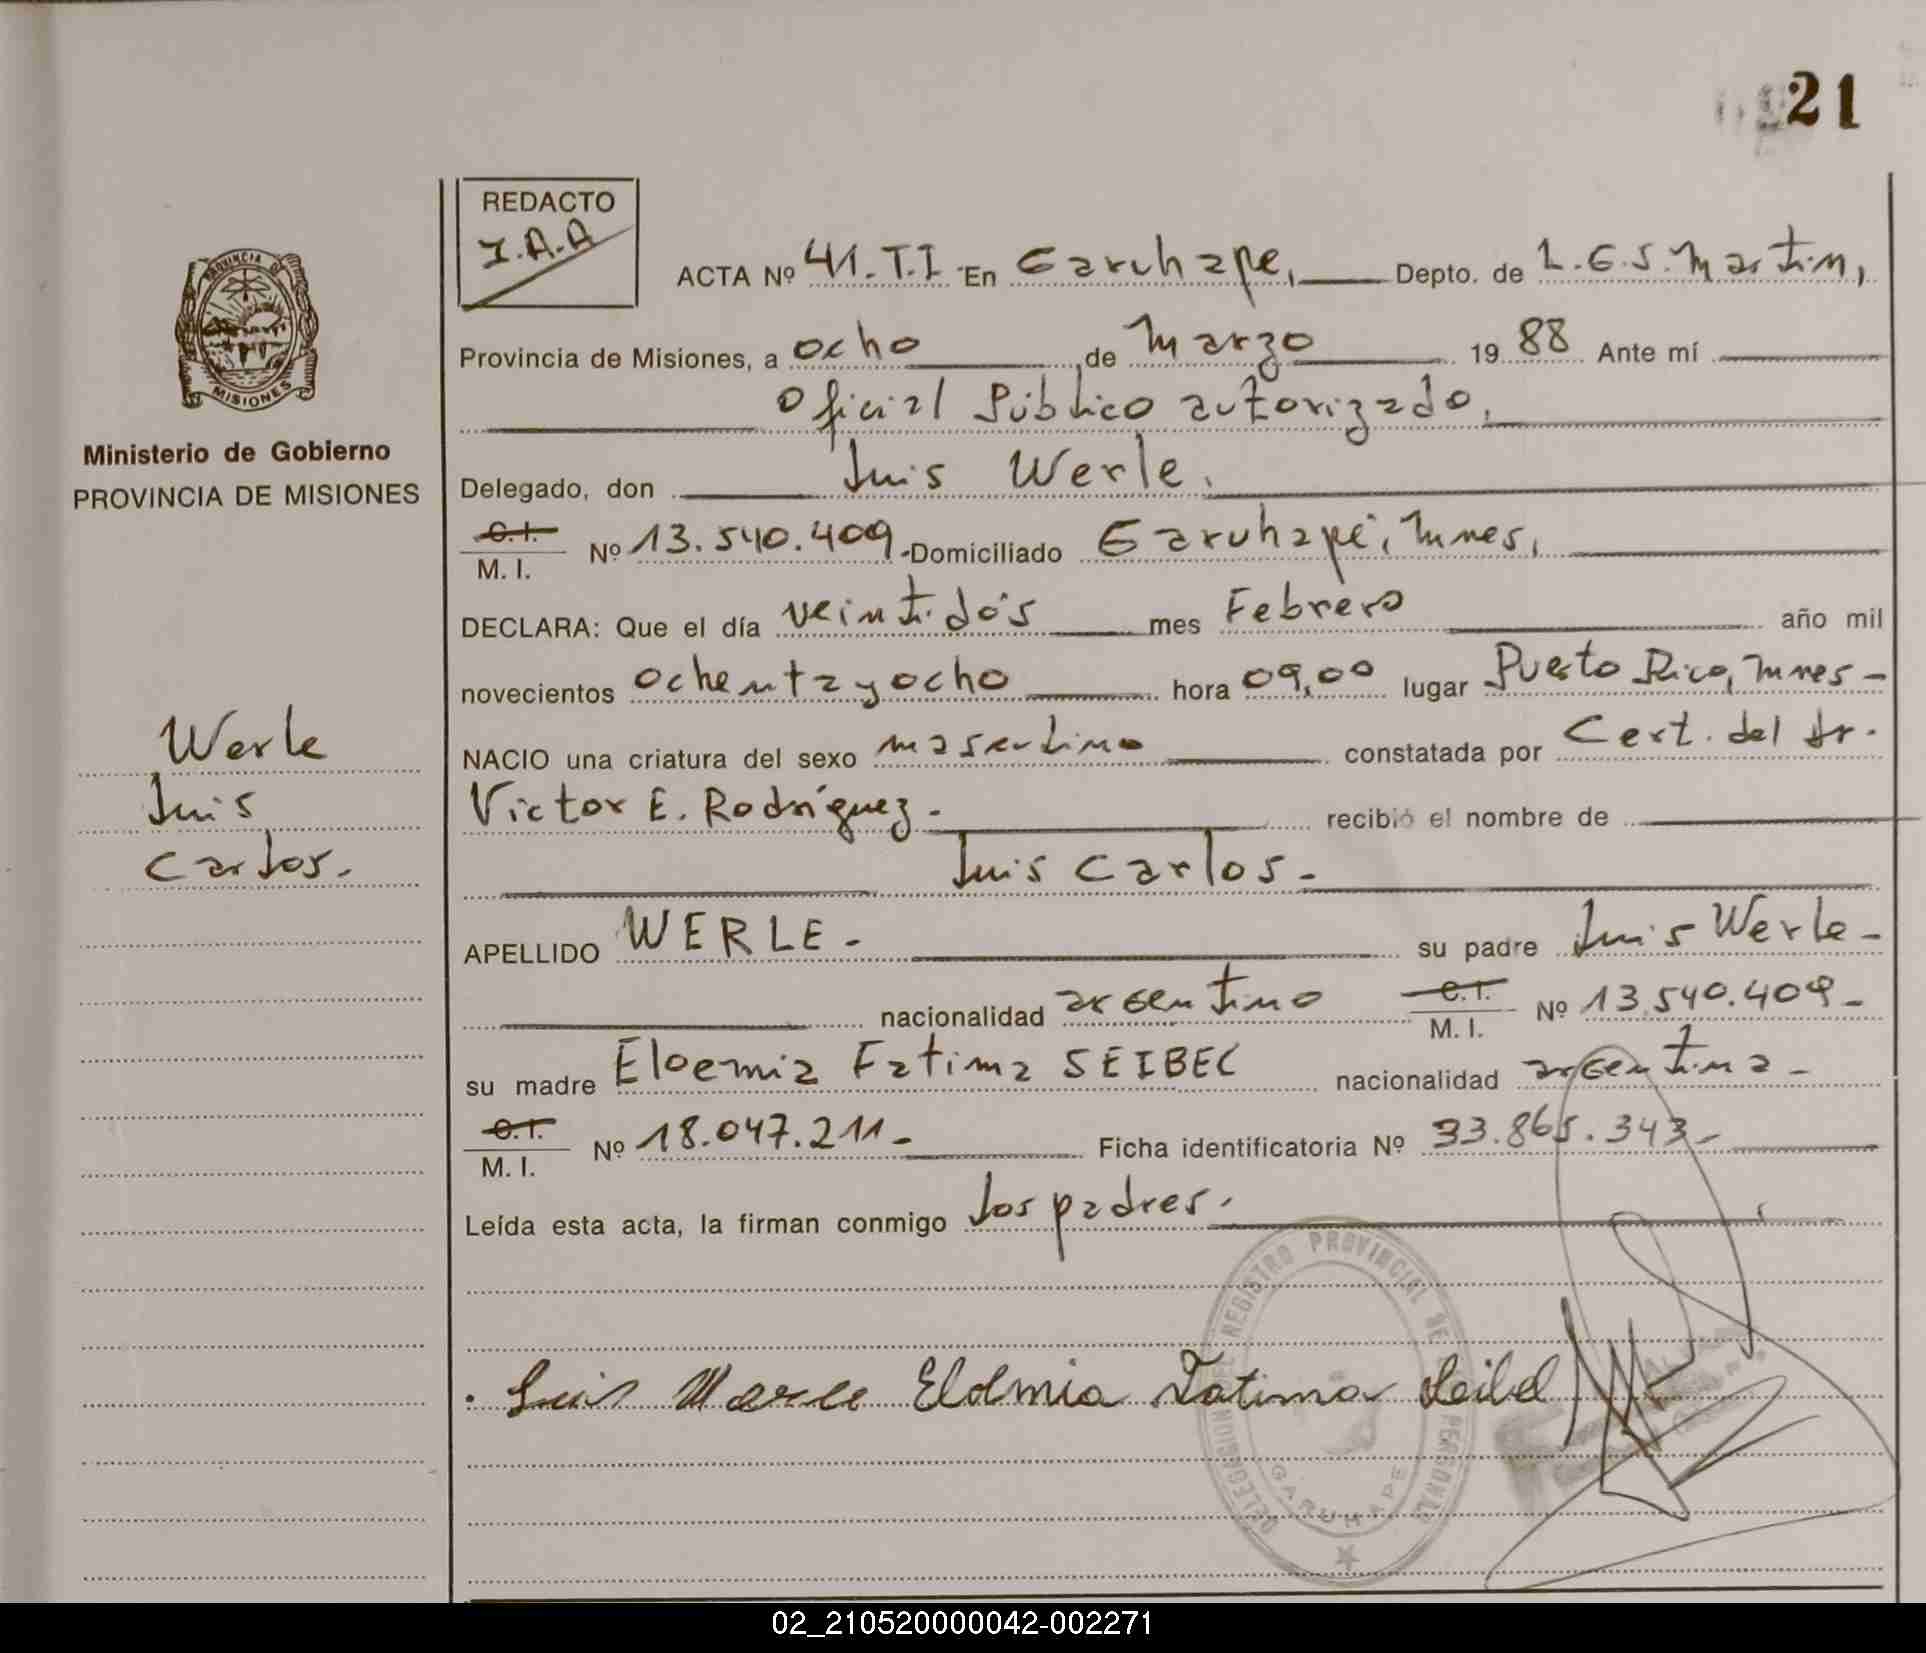 21
REDACTO
I.A.A
ACTA Nº 41.T.I En Garuhape, Depto. de L.G.S.Martin,
Provincia de Misiones, a ocho de Marzo 19 88 Ante mí
Oficial Público autorizado,
Delegado, don Luis Werle.
C.I.
M. I. Nº 13.540.409.-Domiciliado Garuhape, Mnes,
DECLARA: Que el día veintidós mes Febrero año mil
novecientos ochenta y ocho hora 09,00 lugar Puerto Rico, Mnes-
NACIO una criatura del sexo masculino constatada por Cert. del dr.
Victor E. Rodríguez.- recibió el nombre de
Luis Carlos.-
APELLIDO WERLE.- su padre Luis Werle-
nacionalidad argentino C.I.
M. I. Nº 13.540.409-
su madre Eloemia Fatima SEIBEL nacionalidad argentina-
C.I.
M. I. Nº 18.047.211- Ficha identificatoria Nº 33.865.343-
Leída esta acta, la firman conmigo los padres.
Luis Werle Eloemia Fatima Seibel
DELEGACION DEL REGISTRO PROVINCIAL DE PERSONAS
GARUHAPE
PROVINCIA DE
MISIONES
Ministerio de Gobierno
PROVINCIA DE MISIONES
Werle
Luis
Carlos.
02_210520000042-002271